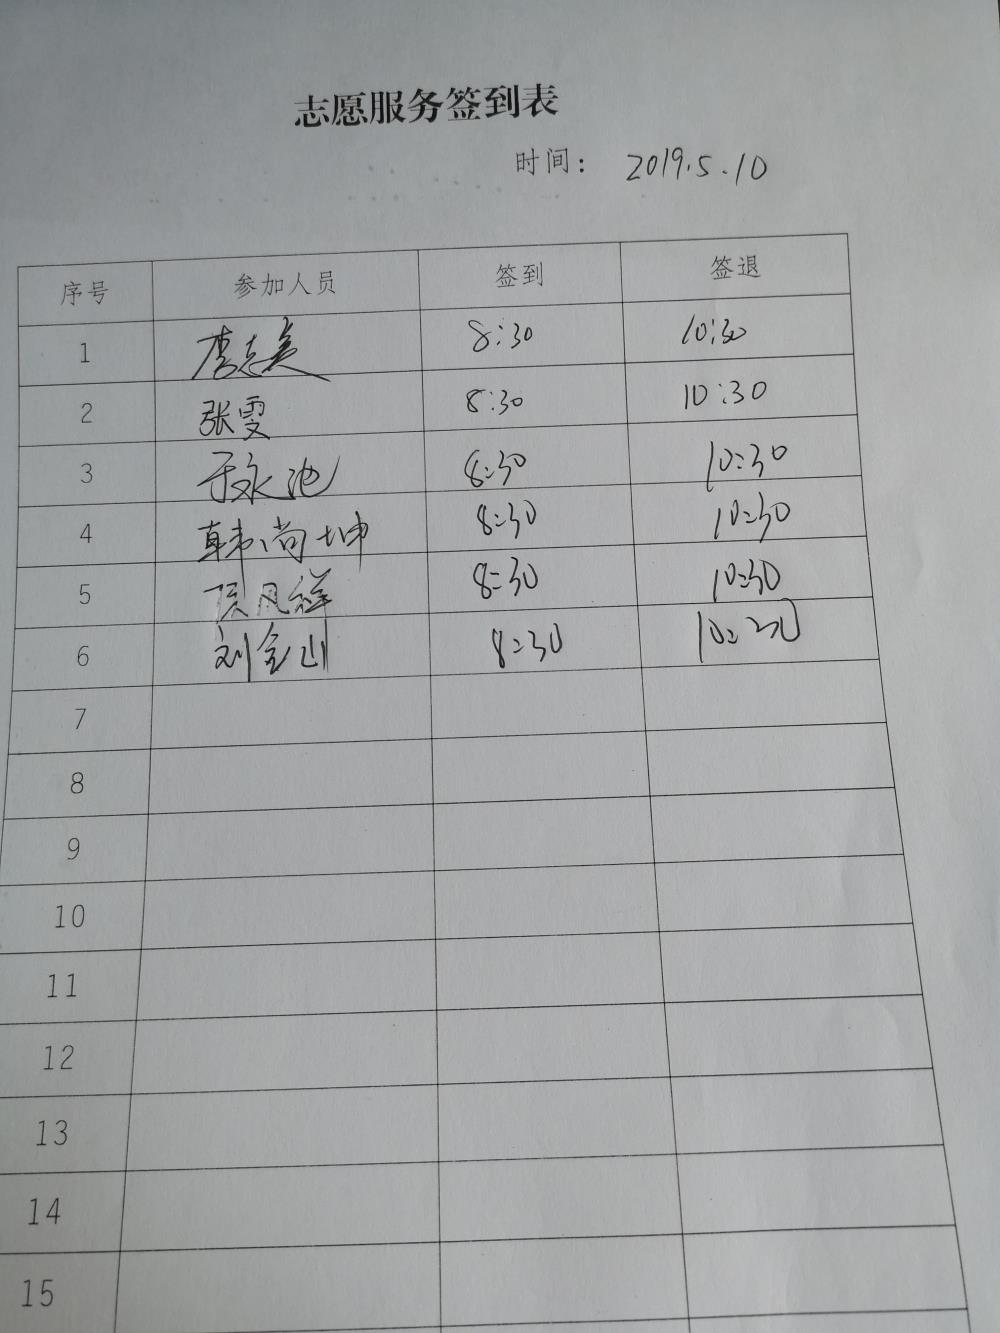 志愿服务签到表
时间： 2019.5.10
序号 参加人员 签到 签退
1 李志美 8:30 10:30
2 张雯 8:30 10:30
3 于永池 8:30 10:30
4 韩尚坤 8:30 10:30
5 风祥 8:30 10:30
6 刘金山 8:30 10:30
7
8
9
10
11
12
13
14
15